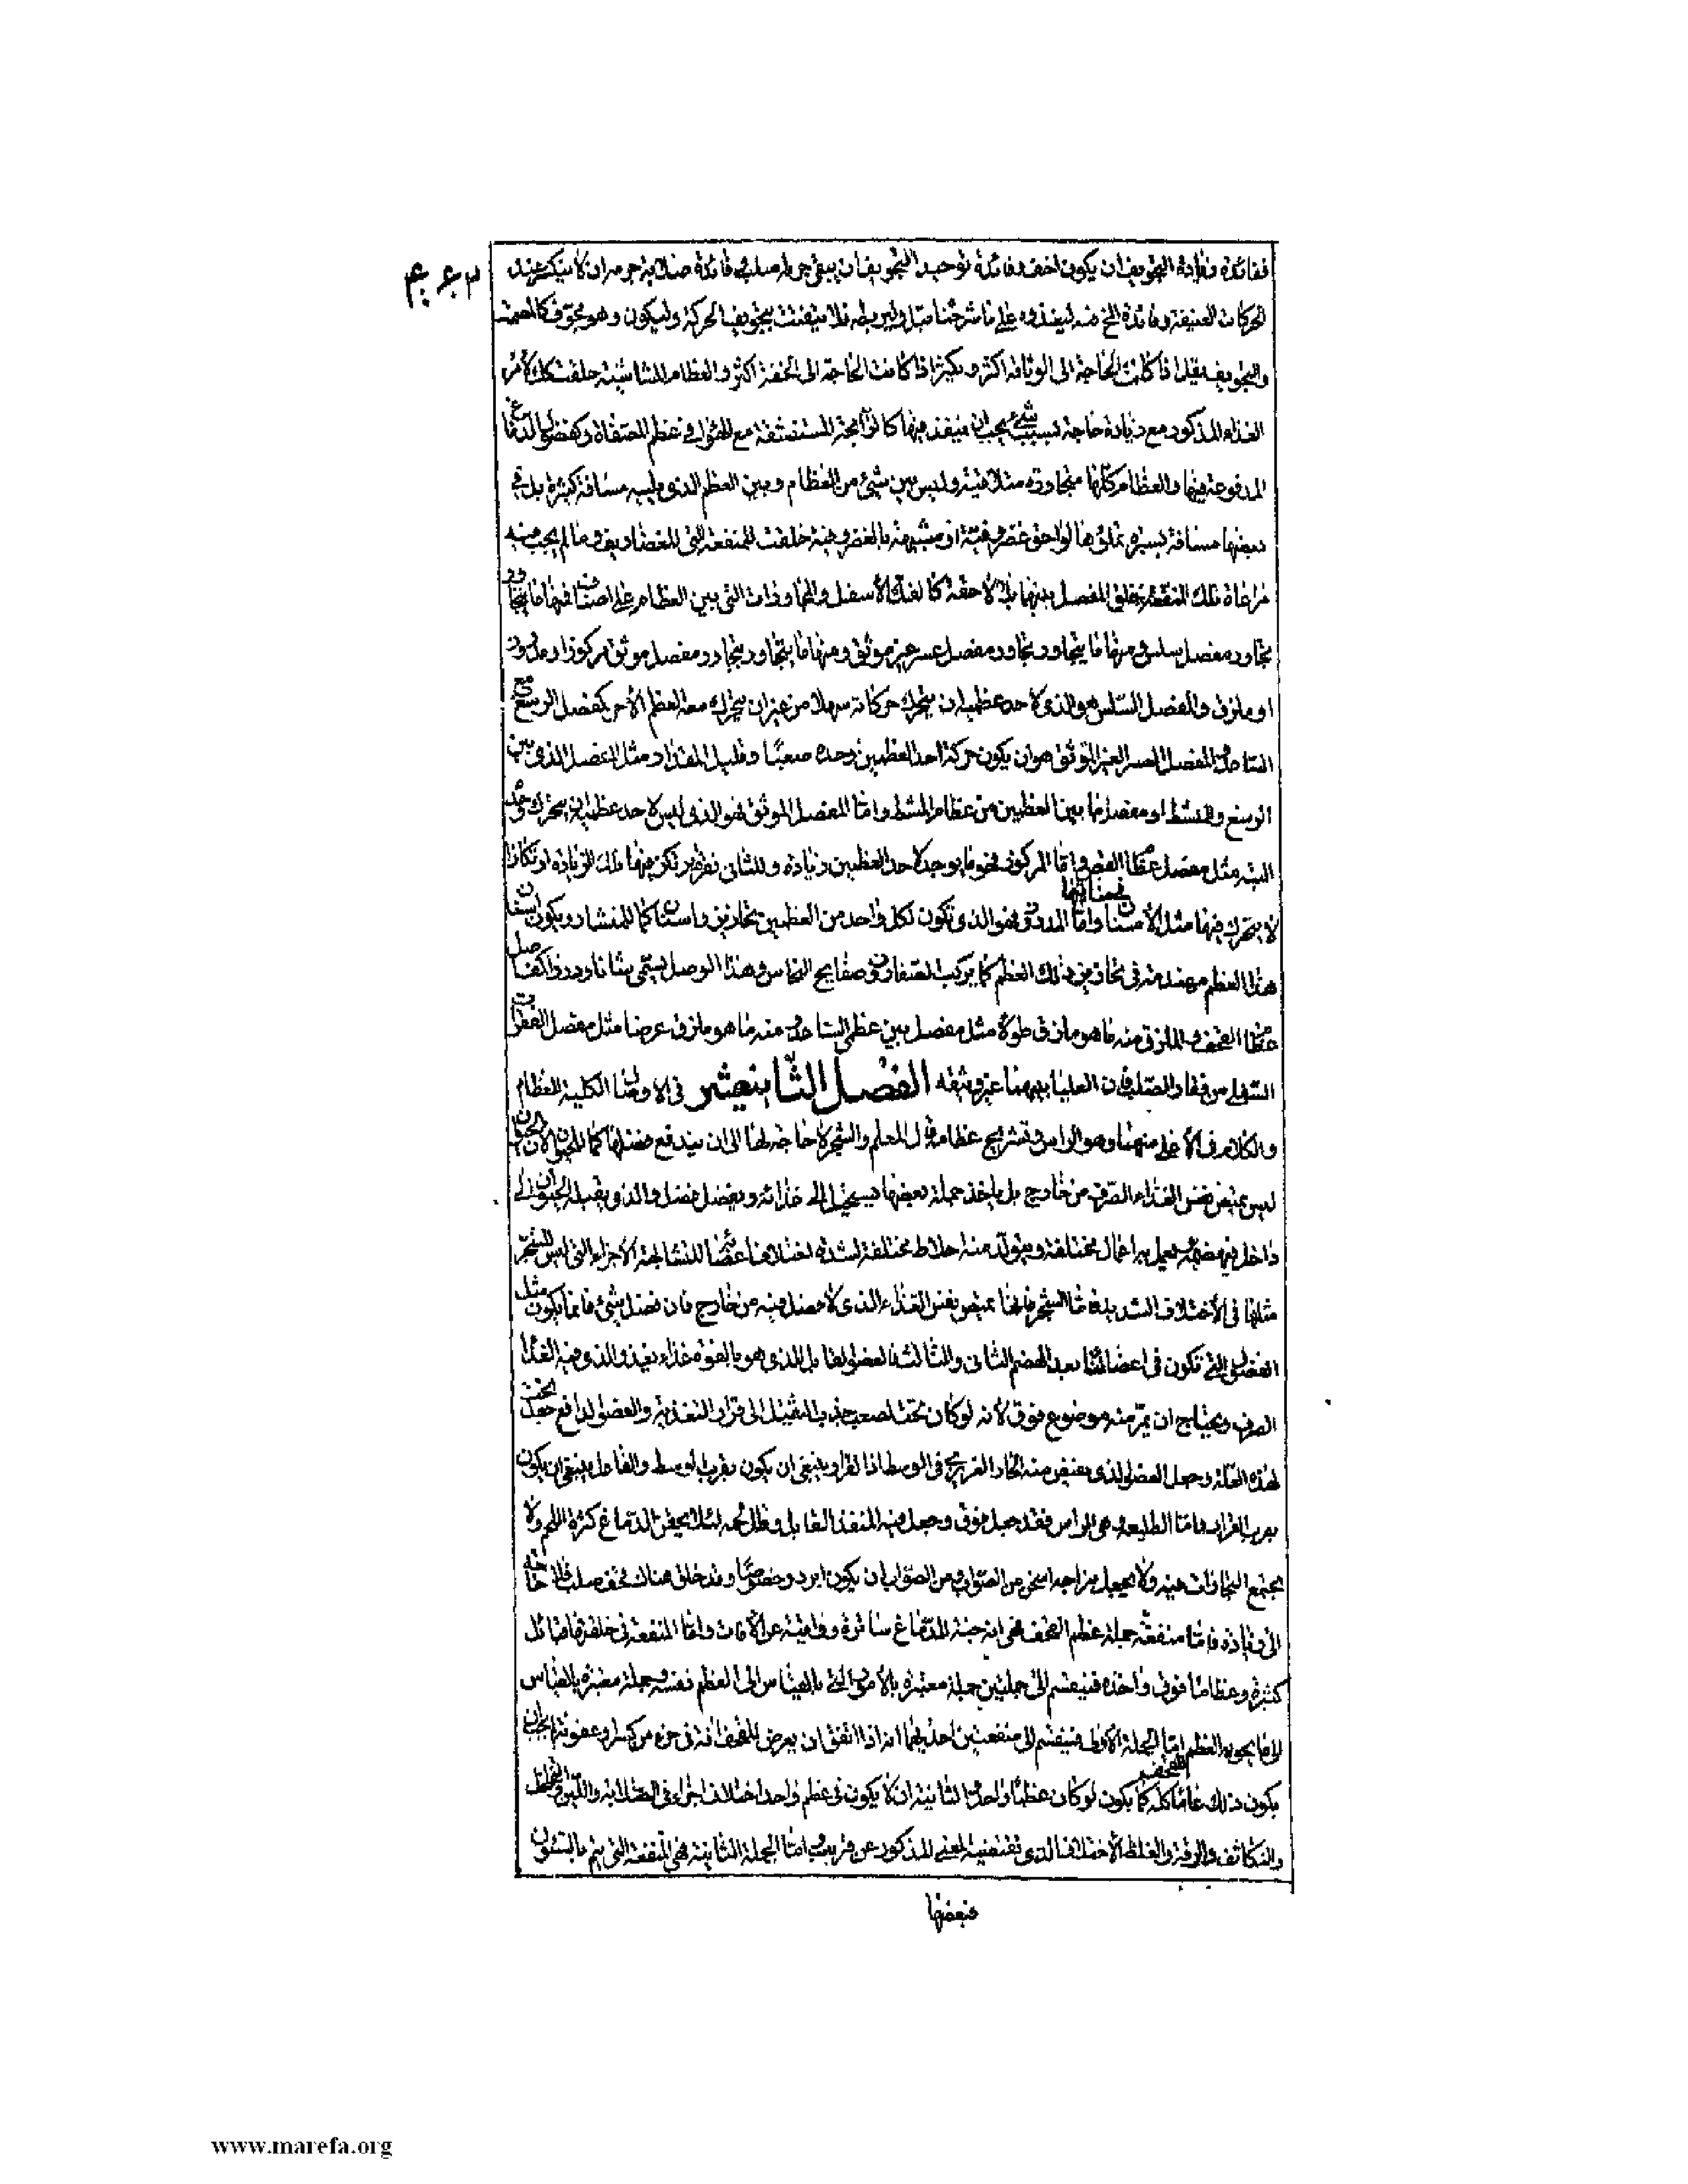 ففائدة وزيادة التجويف ان يكون اخف وفائدة توحيد التجويف ان يبقى جرمه صلب وفائدة صلابة جرمه ان لا ينكسر عند
الحركات العنيفة وفائدة المخ فيه ليغذوه على ما شرحنا قبل وليرطبه فلا يتفتت بتجفيف الحركة وليكون وهو مجوف كالمصمت
والتجويف يقل اذا كانت الحاجة الى الوثاقة اكثر ويكثر اذا كانت الحاجة الى الخفة اكثر والعظام المشاشية خلقت كذلك لامر
الغذاء المذكور مع زيادة حاجة بسبب شئ يجب ان ينفذ فيها كالرائحة المستنشقة مع الهواء في عظم المصفاة وكفضول الدماغ
المدفوعة فيها والعظام كلها متجاورة متلاقية وليس بين شئ من العظام وبين العظم الذى يليه مسافة كثيرة بل في
بعضها مسافة يسيرة تملؤها لواحق غضروفية او شبيهة بالغضروفية خلقت للمنفعة التي للغضاريف وما لم يجب فيه
مراعاة تلك المنفعة خلق المفصل بينهما بلا لاحقة كالفك الأسفل والمجاورات التي بين العظام على اصناف فمنها ما يتجاور
تجاور مفصل سلس ومنها ما يتجاور تجاور مفصل عسر غير موثق ومنها ما يتجاور تجاور مفصل موثق مركوز او مدروز
او ملزق والمفصل السلس هو الذى لاحد عظميه ان يتحرك حركاته سهلا من غير ان يتحرك معه العظم الأخر كمفصل الرسغ مع
الساعد والمفصل العسر الغير الموثق هو ان يكون حركة احد العظمين وحده صعبًا وقليل المقدار مثل المفصل الذى بين
الرسغ والمشط او مفصل ما بين العظمين من عظام المشط واما المفصل الموثق فهو الذى ليس لاحد عظميه ان يتحرك وحده
البتة مثل مفصل عظام القص واما المركوز فهو ما يوجد لاحد العظمين زيادة وللثانى نقرة يرتكز فيها تلك الزيادة ارتكازا
لا يتحرك فيها مثل الأسنان في منابتها واما المدروز فهو الذى يكون لكل واحد من العظمين تحازيز واسنان كما للمنشار ويكون اسنان
هذا العظم مهندمة في تحازيز ذلك العظم كما يركب الصفارون صفايح النحاس وهذا الوصل يسمى شانا ودرزا كمفاصل
عظام القحف والملزق منه ما هو ملزق طولا مثل مفصل بين عظمى الساعد ومنه ما هو ملزق عرضا مثل مفصل الفقرات
السفلى من فقار الصلب فان العليا بينهما غير وثيقه الفصل الثانيعشر في الاوصاف الكلية للعظام
والكلام في الأعلى منهما وهو الراس وتشريح عظامه قال المعلم والشجرة لا حاجة لها الى ان يندفع فضلها كما للحيوان لان الحيوان
ليس يمتص نفس الغذاء الصرف من خارج بل ياخذ جملة بعضها يستحيل الى غذائه ويفضل فضل والذى يقبله الحيوان الى
داخل فيهضمه يعمل به اعمال مختلفة ويتولد منه اخلاط مختلفة لشدة اختلاف اعضائه المتشابهة الأجزاء التي ليس للشجر
مثلها في الأختلاف الشديد فاما الشجر فانها تمتص نفس الغذاء الذى لا فضل فيه من خارج فان فضل شئ فانما يكون مثل
الفضول التي تكون في اعضائنا بعد الهضم الثانى والثالث فالعضو القابل الذى هو بالقوة غذاء يغذو الذى فيه الغذاء
الصرف ويحتاج ان يمر منه موضوع فوق لأنه لو كان تحت لصعب جذب الثقيل الى قرار التغذية والعضو الدافع جعل تحت
لهذه العلة وجعل العضو الذى يفيض منه الحار الغريزي في الوسط اذ القرار ينبغي ان يكون بقرب الوسط والفاعل ينبغي ان يكون
بقرب القرار واما الطليعة وهي الراس فقد جعل فوق وجعل فيه المنفذ القابل وقلل لحمه لئلا يجفن الدماغ كثرة اللحم ولا
يجتمع البخارات فيه ولا يجعل مزاجه اسخن من الصواب ومن الصواب ان يكون ابرد وخصوصا وقد خلق هناك قحف صلب فلا حاجة
الى زيادة فاما منفعة جملة عظم القحف فهي انه جنة للدماغ ساترة وواقية عن الأفات واما المنفعة في خلقها قبائل
كثيرة وعظاما فوق واحدة فينقسم الى جملتين جملة معتبرة بالأمور التي بالقياس الى العظم نفسه وجملة معتبرة بالقياس
الى ما يحويه العظم اما الجملة الأولى فينقسم الى منفعتين احديهما انه اذا اتفق ان يعرض للقحف افة في جزء من كسر او عفونة لم يجب ان
يكون ذلك عاما للقحف كله كما يكون لو كان عظمًا واحدًا الثانية ان لا يكون في عظم واحد اختلاف اجزاء في الصلابة واللين والتخلخل
والتكاثف والرقة والغلظ الأختلاف الذى تقتضيه المعنى المذكور عن قريب واما الجملة الثانية فهي المنفعة التي يتم بالشئون
فبعضها
www.marefa.org